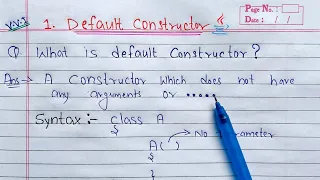 VVI
1. Default Constructor
Page No. :
Date : / /
Q What is default Constructor?
Ans → A Constructor which does not have
any arguments or .....
Syntax :- class A
{
A( ) → No Parameter
}